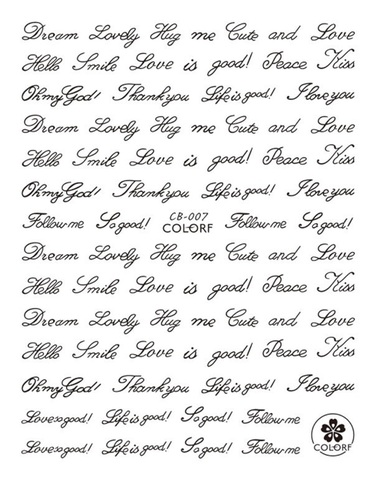 Dream Lovely Hug me Cute and Love
Hello Smile Love is good! Peace Kiss
Oh my God!! Thank you Life is good! I love you
Dream Lovely Hug me Cute and Love
Hello Smile Love is good! Peace Kiss
Oh my God!! Thank you Life is good! I love you
Follow me So good! CB-007 COLORF Follow me So good!
Dream Lovely Hug me Cute and Love
Hello Smile Love is good! Peace Kiss
Dream Lovely Hug me Cute and Love
Hello Smile Love is good! Peace Kiss
Oh my God!! Thank you Life is good! I love you
Love so good! Life is good! So good! Follow me
Love so good! Life is good! So good! Follow me COLORF